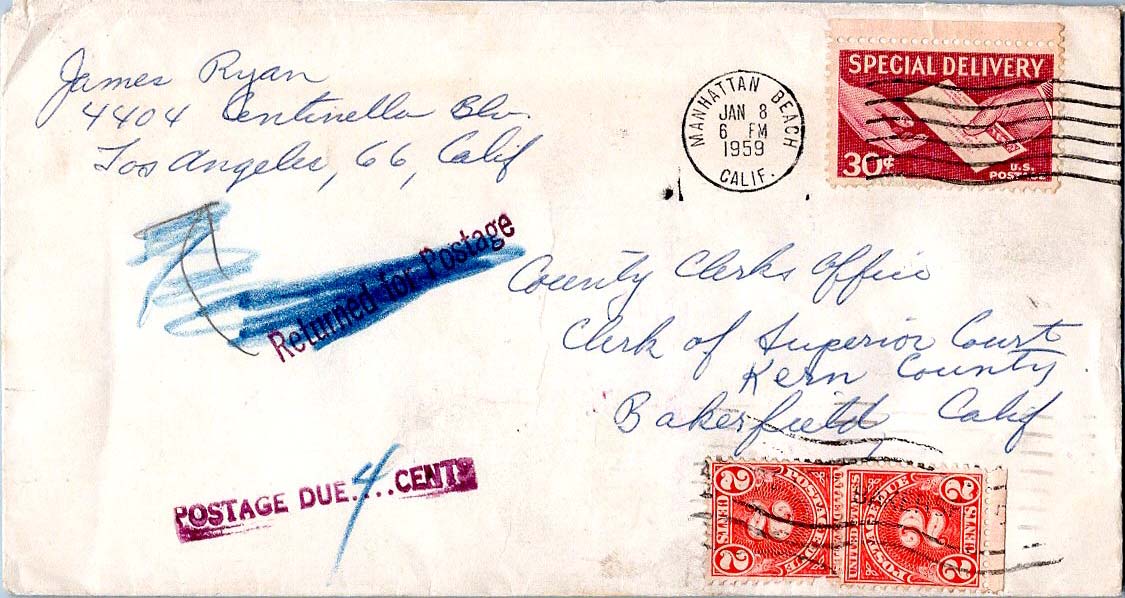 James Ryan
4404 Centinella Blv.
Los Angeles, 66, Calif
MANHATTAN BEACH
JAN 8
6 PM
1959
CALIF.
SPECIAL DELIVERY
30¢
U.S.
POSTAGE
Returned for Postage
County Clerks Office
Clerk of Superior Court
Kern County
Bakerfield, Calif
POSTAGE DUE 4 CENTS
2 CENTS 2
POSTAGE DUE
2
UNITED STATES
2 CENTS 2
POSTAGE DUE
2